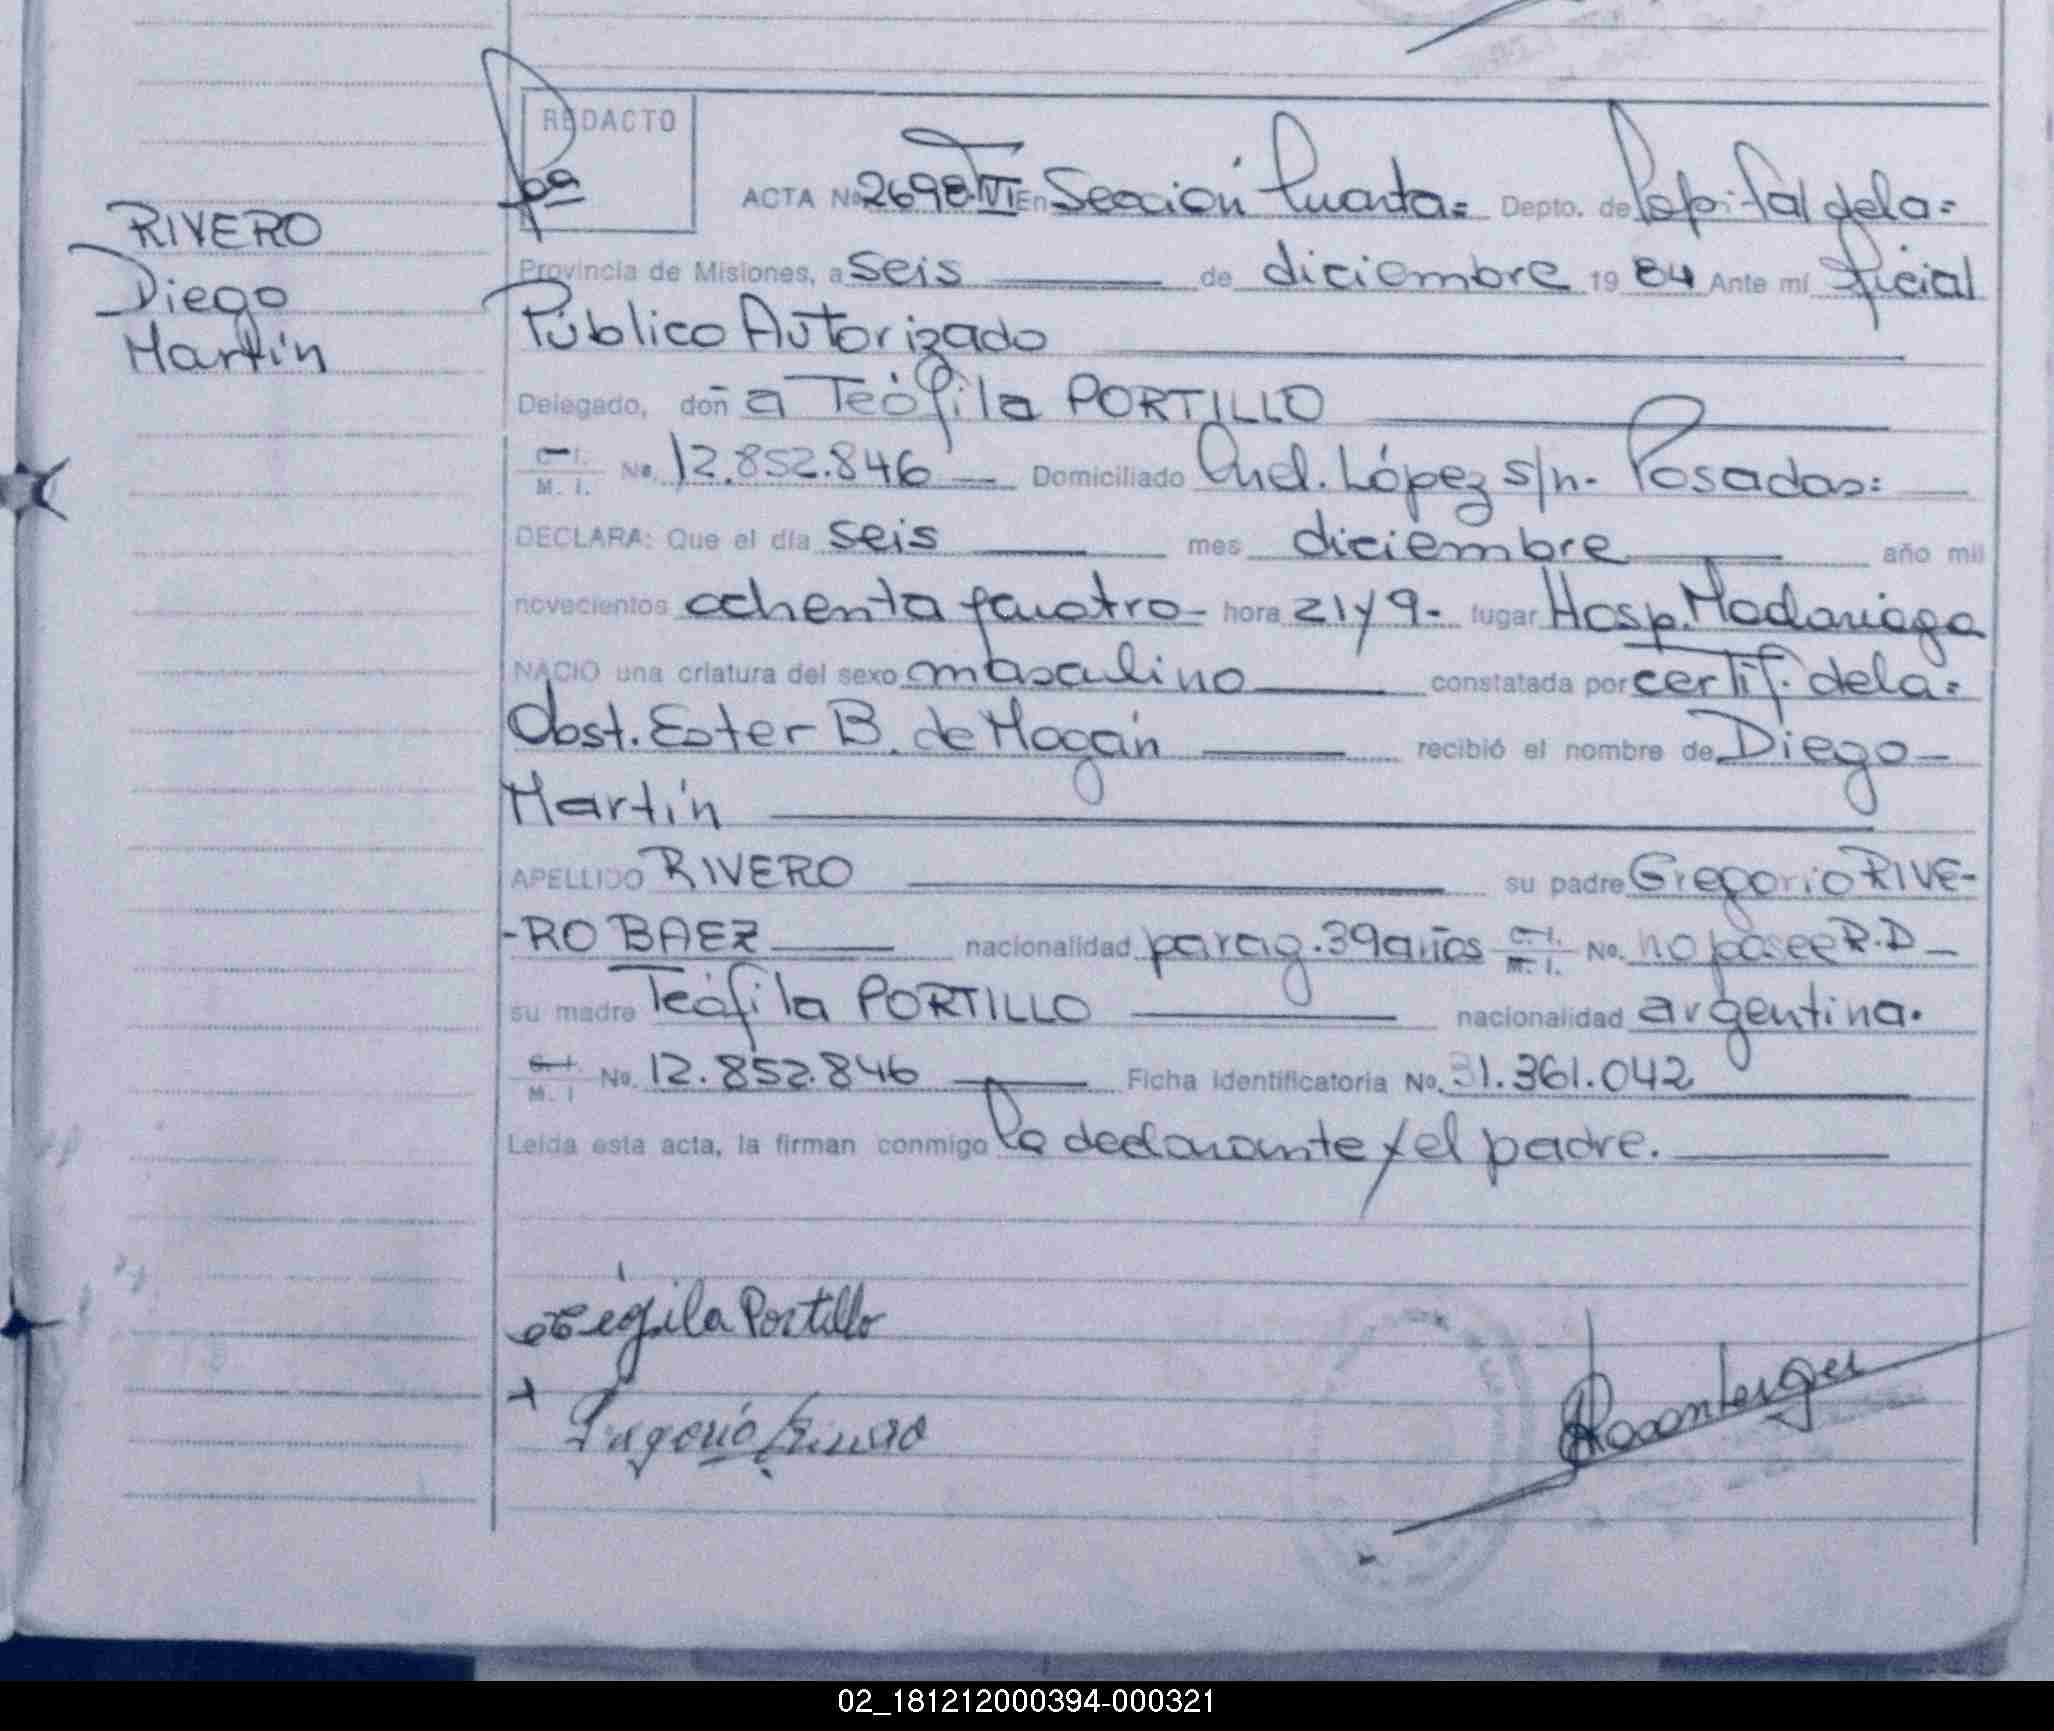 REDACTO
RIVERO
Diego
Martín
ACTA No 2698-VI En Sección Cuarta= Depto. de Capital de la=
Provincia de Misiones, a seis de diciembre 1984 Ante mí Oficial
Público Autorizado
Delegado, doña Teófila PORTILLO
C. I. M. I. No. 12.852.846 Domiciliado López s/n. Posadas=
DECLARA: Que el día seis mes diciembre año mil
novecientos ochenta y cuatro- hora 21 y 9- lugar Hosp. Madariaga
NACIO una criatura del sexo masculino constatada por certif. de la=
Obst. Ester B. de Mogán recibió el nombre de Diego-
Martín
APELLIDO RIVERO su padre Gregorio RIVE-
-RO BAEZ nacionalidad parag. 39 años C. I. M. I. No. no posee R.D-
su madre Teófila PORTILLO nacionalidad argentina.
C. I. M. I No. 12.852.846 Ficha identificatoria No. 31.361.042
Leída esta acta, la firman conmigo la declarante y el padre.
Teófila Portillo
02_181212000394-000321